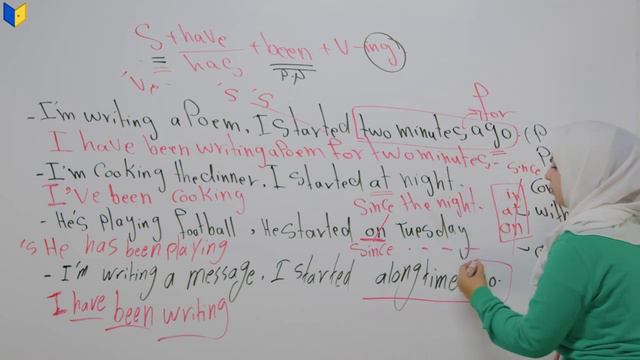 S + have + been + V-ing
has P.P
've 's 's
for
- I'm writing a Poem. I started two minutes ago. (P
I have been writing a Poem for two minutes.
- I'm Cooking the dinner. I started at night. Since
I've been Cooking Since the night. in
- He's Playing football, He started on Tuesday at with
's He has been playing Since - - - - on
- I'm writing a message. I started a long time
I have been writing